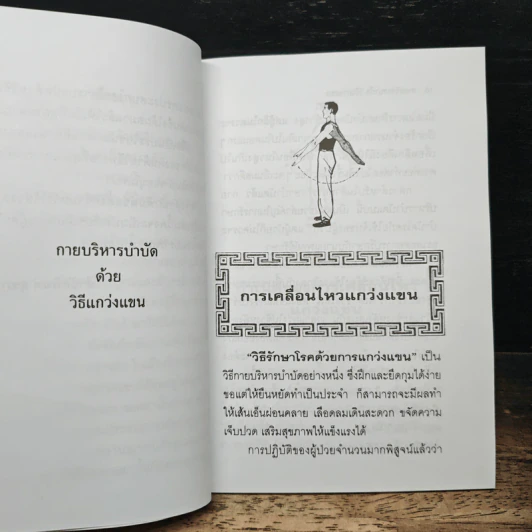 กายบริหารบำบัด
ด้วย
วิธีแกว่งแขน
การเคลื่อนไหวแกว่งแขน
"วิธีรักษาโรคด้วยการแกว่งแขน" เป็น
วิธีกายบริหารบำบัดอย่างหนึ่ง ซึ่งฝึกและยึดกุมได้ง่าย
ขอแต่ให้ยืนหยัดทำเป็นประจำ ก็สามารถจะมีผลทำ
ให้เส้นเอ็นผ่อนคลาย เลือดลมเดินสะดวก ขจัดความ
เจ็บปวด เสริมสุขภาพให้แข็งแรงได้
การปฏิบัติของผู้ป่วยจำนวนมากพิสูจน์แล้วว่า